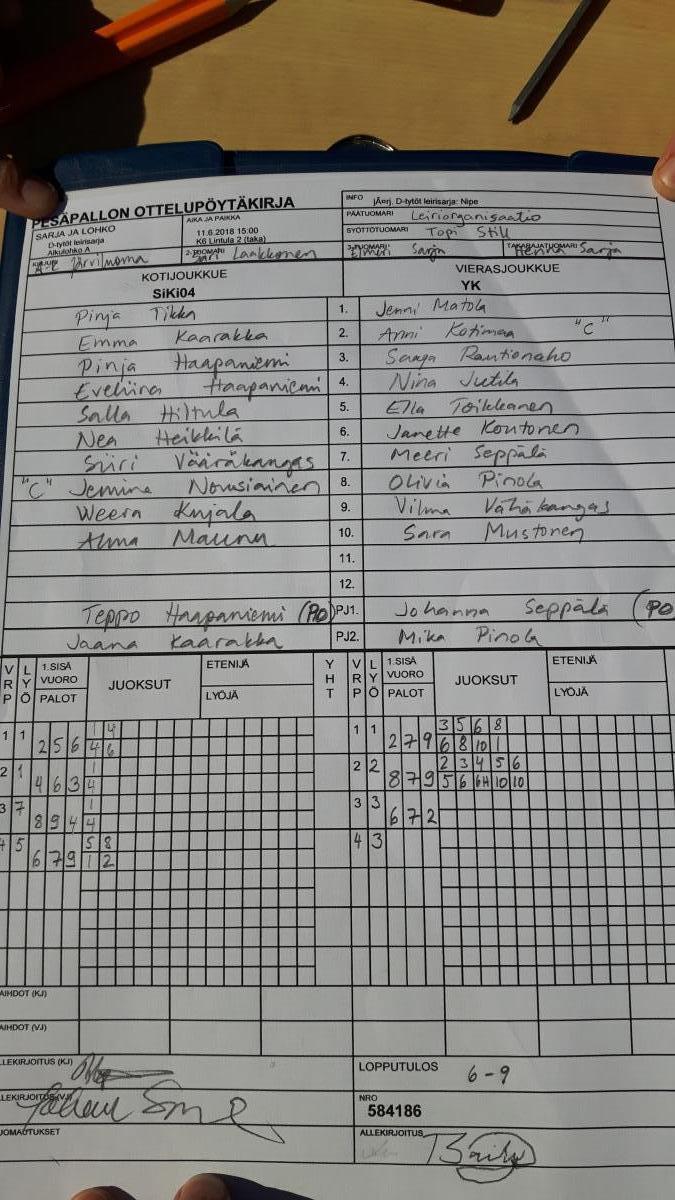 PESÄPALLON OTTELUPÖYTÄKIRJA
SARJA JA LOHKO
D-tytöt leirisarja
Alkulohko A
AIKA JA PAIKKA
11.6.2018 15:00
K6 Lintula 2 (taka)
INFO jÄerj. D-tytöt leirisarja: Nipe
PÄÄTUOMARI Leiriorganisaatio
SYÖTTÖTUOMARI Topi Still
Järvilnoma
2-TUOMARI Laakkonen
3-TUOMARI Elmeri Sarja
TAKARAJATUOMARI Henna Sarja
KOTIJOUKKUE
SiKi04
VIERASJOUKKUE
YK
Pinja Tikka 1. Jenni Matola
Emma Kaarakka 2. Anni Kotimaa "C"
Pinja Haapaniemi 3. Saaga Rautionaho
Eveliina Haapaniemi 4. Nina Jutila
Salla Hiltula 5. Ella Toikkanen
Nea Heikkilä 6. Janette Kontonen
Siiri Vääräkangas 7. Meeri Seppälä
"C" Jemina Novusiainen 8. Olivia Pinola
Weera Kujala 9. Vilma Vähäkangas
Alma Maunu 10. Sara Mustonen
11.
12.
Teppo Haapaniemi (PO) PJ1. Johanna Seppälä (PO
Jaana Kaarakka PJ2. Mika Pinola
VRP LYÖ 1.SISÄ VUORO PALOT JUOKSUT ETENIJÄ LYÖJÄ YHT VRP LYÖ 1.SISÄ VUORO PALOT JUOKSUT ETENIJÄ LYÖJÄ
1 1 1 4 1 1 3 5 6 8
2 5 6 4 6 2 7 9 6 8 10 1
2 1 1 2 2 2 3 4 5 6
4 6 3 4 8 7 9 5 6 6H 10 10
3 7 1 3 3
8 9 4 4 6 7 2
4 5 5 8 4 3
6 7 9 1 2
AIHDOT (KJ)
AIHDOT (VJ)
LLEKIRJOITUS (KJ)
LOPPUTULOS 6-9
LLEKIRJOITUS (VJ)
NRO
584186
UOMAUTUKSET
ALLEKIRJOITUS